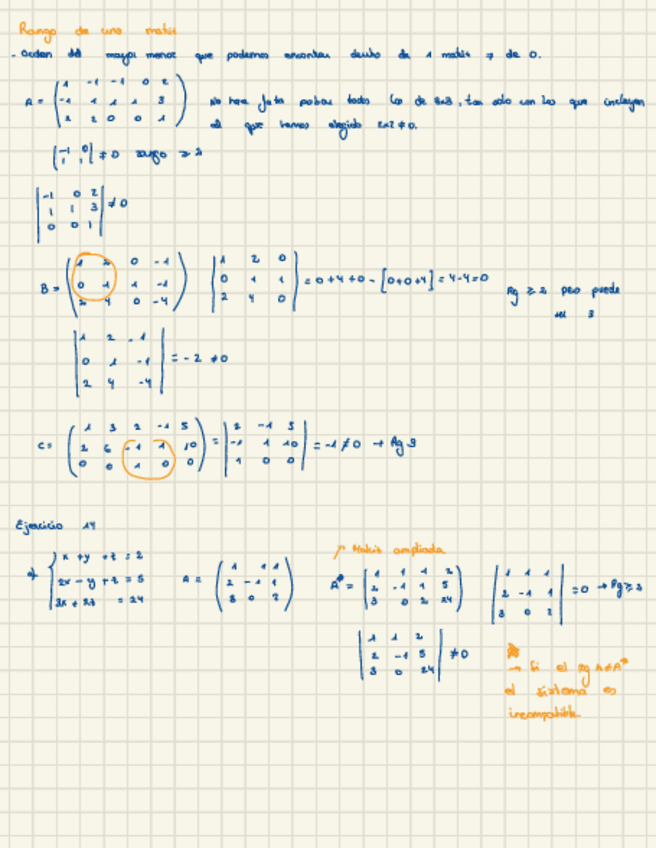 Rango de una matriz
- Orden del mayor menor que podemos encontrar dentro de 1 matriz ≠ de 0.
A = ( 1 -1 -1 0 2
-1 1 1 1 3
2 2 0 0 1 )
No hace falta probar todos los de 3x3, tan solo con los que incluyan
el que hemos elegido 2x2 ≠ 0.
| -1 0
1 1 | ≠ 0 rango ≥ 2
| -1 0 2
1 1 3
0 0 1 | ≠ 0
B = ( 1 2 0 -1
0 1 1 -1
2 4 0 -4 )
| 1 2 0
0 1 1
2 4 0 | = 0 + 4 + 0 - [0+0+4] = 4-4=0
Rg ≥ 2 pero puede
ser 3
| 1 2 -1
0 1 -1
2 4 -4 | = -2 ≠ 0
C = ( 1 3 2 -1 5
2 6 -1 1 10
0 0 1 0 0 ) = | 2 -1 5
-1 1 10
1 0 0 | = -1 ≠ 0 → Rg 3
Ejercicio 14
a) { x + y + z = 2
2x - y + z = 5
3x + 2z = 24
A = ( 1 1 1
2 -1 1
3 0 2 )
Matriz ampliada
A* = ( 1 1 1 2
2 -1 1 5
3 0 2 24 )
| 1 1 1
2 -1 1
3 0 2 | = 0 → Rg ≥
| 1 1 2
2 -1 5
3 0 24 | ≠ 0
→ Si el rg A ≠ A*
el sistema es
incompatible